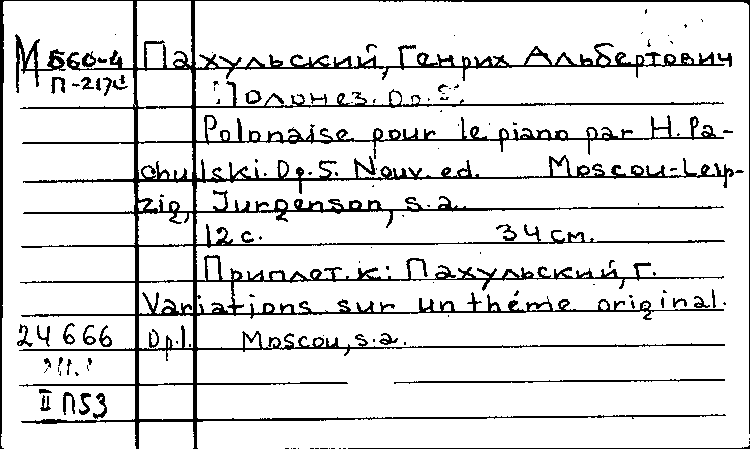 М 560-4 Пахульский, Генрих Альбертович
П-217
Полонез. Op. 5.
Polonaise pour le piano par H. Pa-
chulski. Op. 5. Nouv. ed. Moscou-Leip-
zig, Jurgenson, s.a.
12 с. 34 см.
Приплет. к: Пахульский, Г.
Variations sur un théme original.
24 666 Op. 1. Moscou, s.a.
II П53